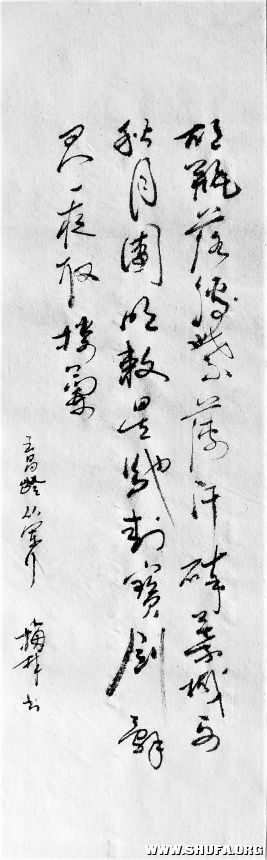 胡瓶落膊紫薄汗碎葉城西
秋月團明敕星馳封寶劍辭
君一夜取樓蘭
王昌齡从軍行
WWW.SHUFA.ORG